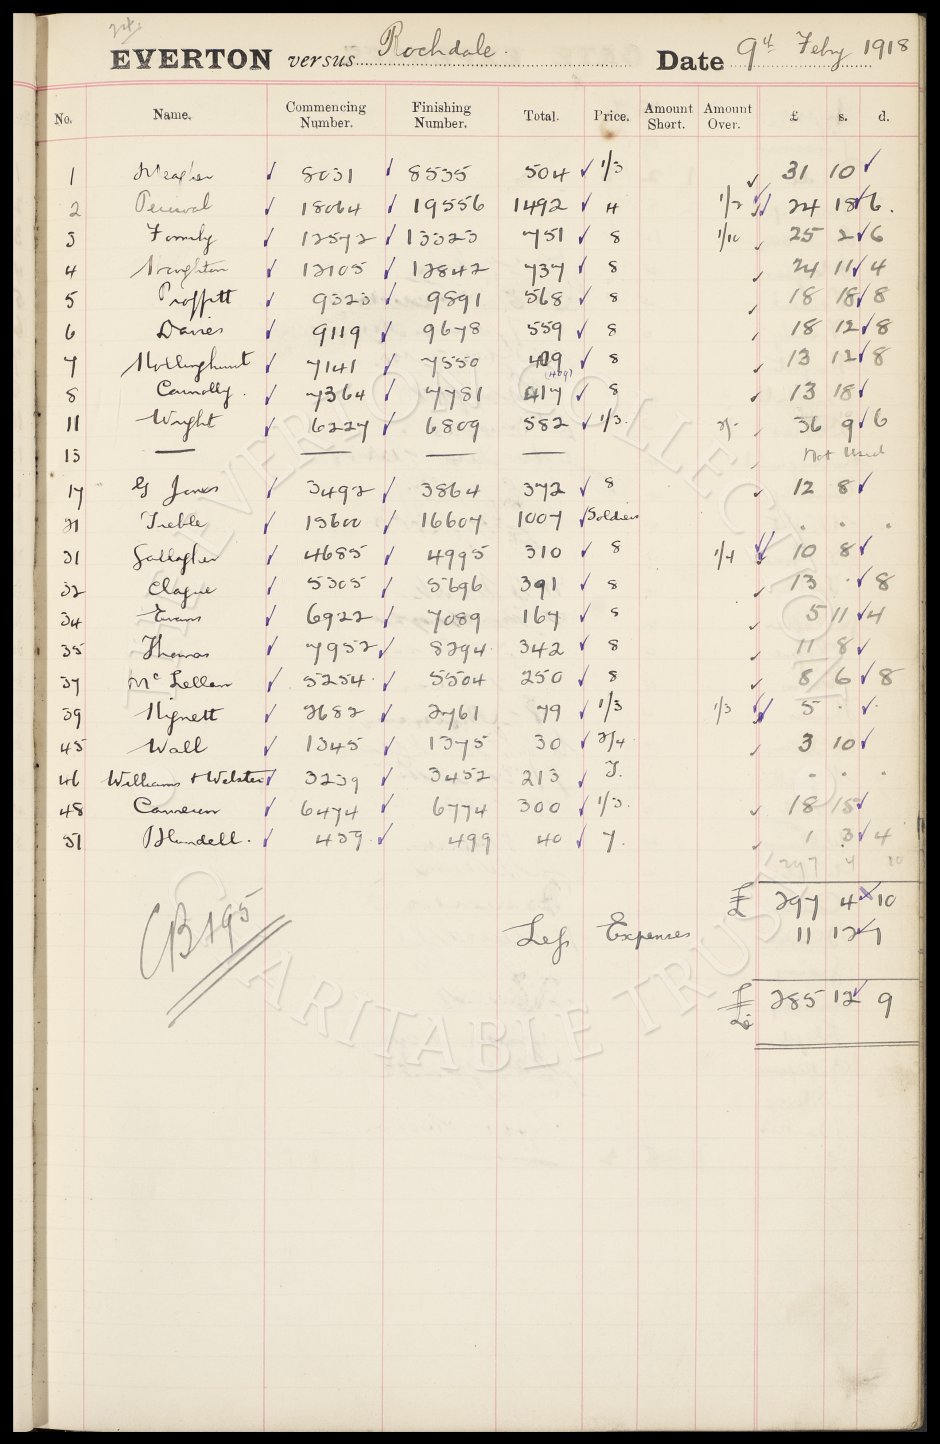 EVERTON versus Rochdale. Date 9th Feby 1918
No. Name. Commencing Number. Finishing Number. Total. Price. Amount Short. Amount Over. £ s. d.
1 Meagher 8031 8535 504 1/3 31 10
2 Percival 18064 19556 1492 4 1/2 24 18 6
3 12572 13323 751 8 1/10 25 2 6
4 Naughton 12105 12842 737 8 24 11 4
5 Proffitt 9323 9891 568 8 18 18 8
6 Davies 9119 9678 559 8 18 12 8
7 Hollinghurst 7141 7550 409 8 13 12 8
(409)
8 Connolly. 7364 7781 417 8 13 18
11 Wright 6227 6809 582 1/3. 2/- 36 9 6
13 — — — — Not Used
17 G Jones 3492 3864 372 8 12 8
21 Treble 15600 16607 1007 Soldiers . . .
31 Gallagher 4685 4995 310 8 1/4 10 8
32 Clague 5305 5696 391 8 13 . 8
34 Evans 6922 7089 167 8 5 11 4
35 Thomas 7952 8294 342 8 11 8
37 Mc Lellan 5254 5504 250 8 8 6 8
39 Hignett 2682 2761 79 1/3 1/3 5 . .
45 Wall 1345 1375 30 2/4 3 10
46 Williams + Webster 3239 3452 213 J. . . .
48 Cameron 6474 6774 300 1/3. 18 15
51 Blundell. 459 499 40 7. 1 3 4
297 4 10
£ 297 4 10
Less Expenses 11 12 1
£ 285 12 9
EVERTON COLLECTION
CHARITABLE TRUST